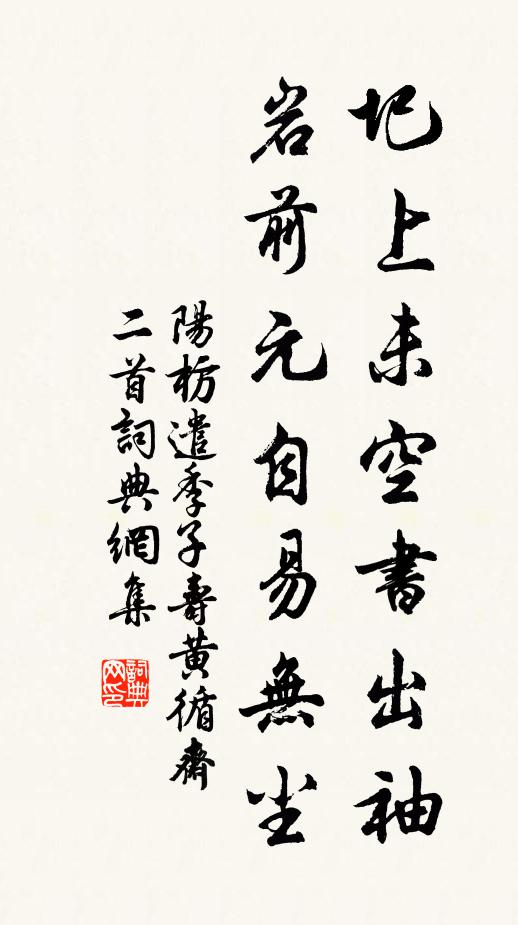 圯上未空書出袖
岩前元自易無尘
陽枋遣季子壽黃循齋
二首詞典網集
詞典网印